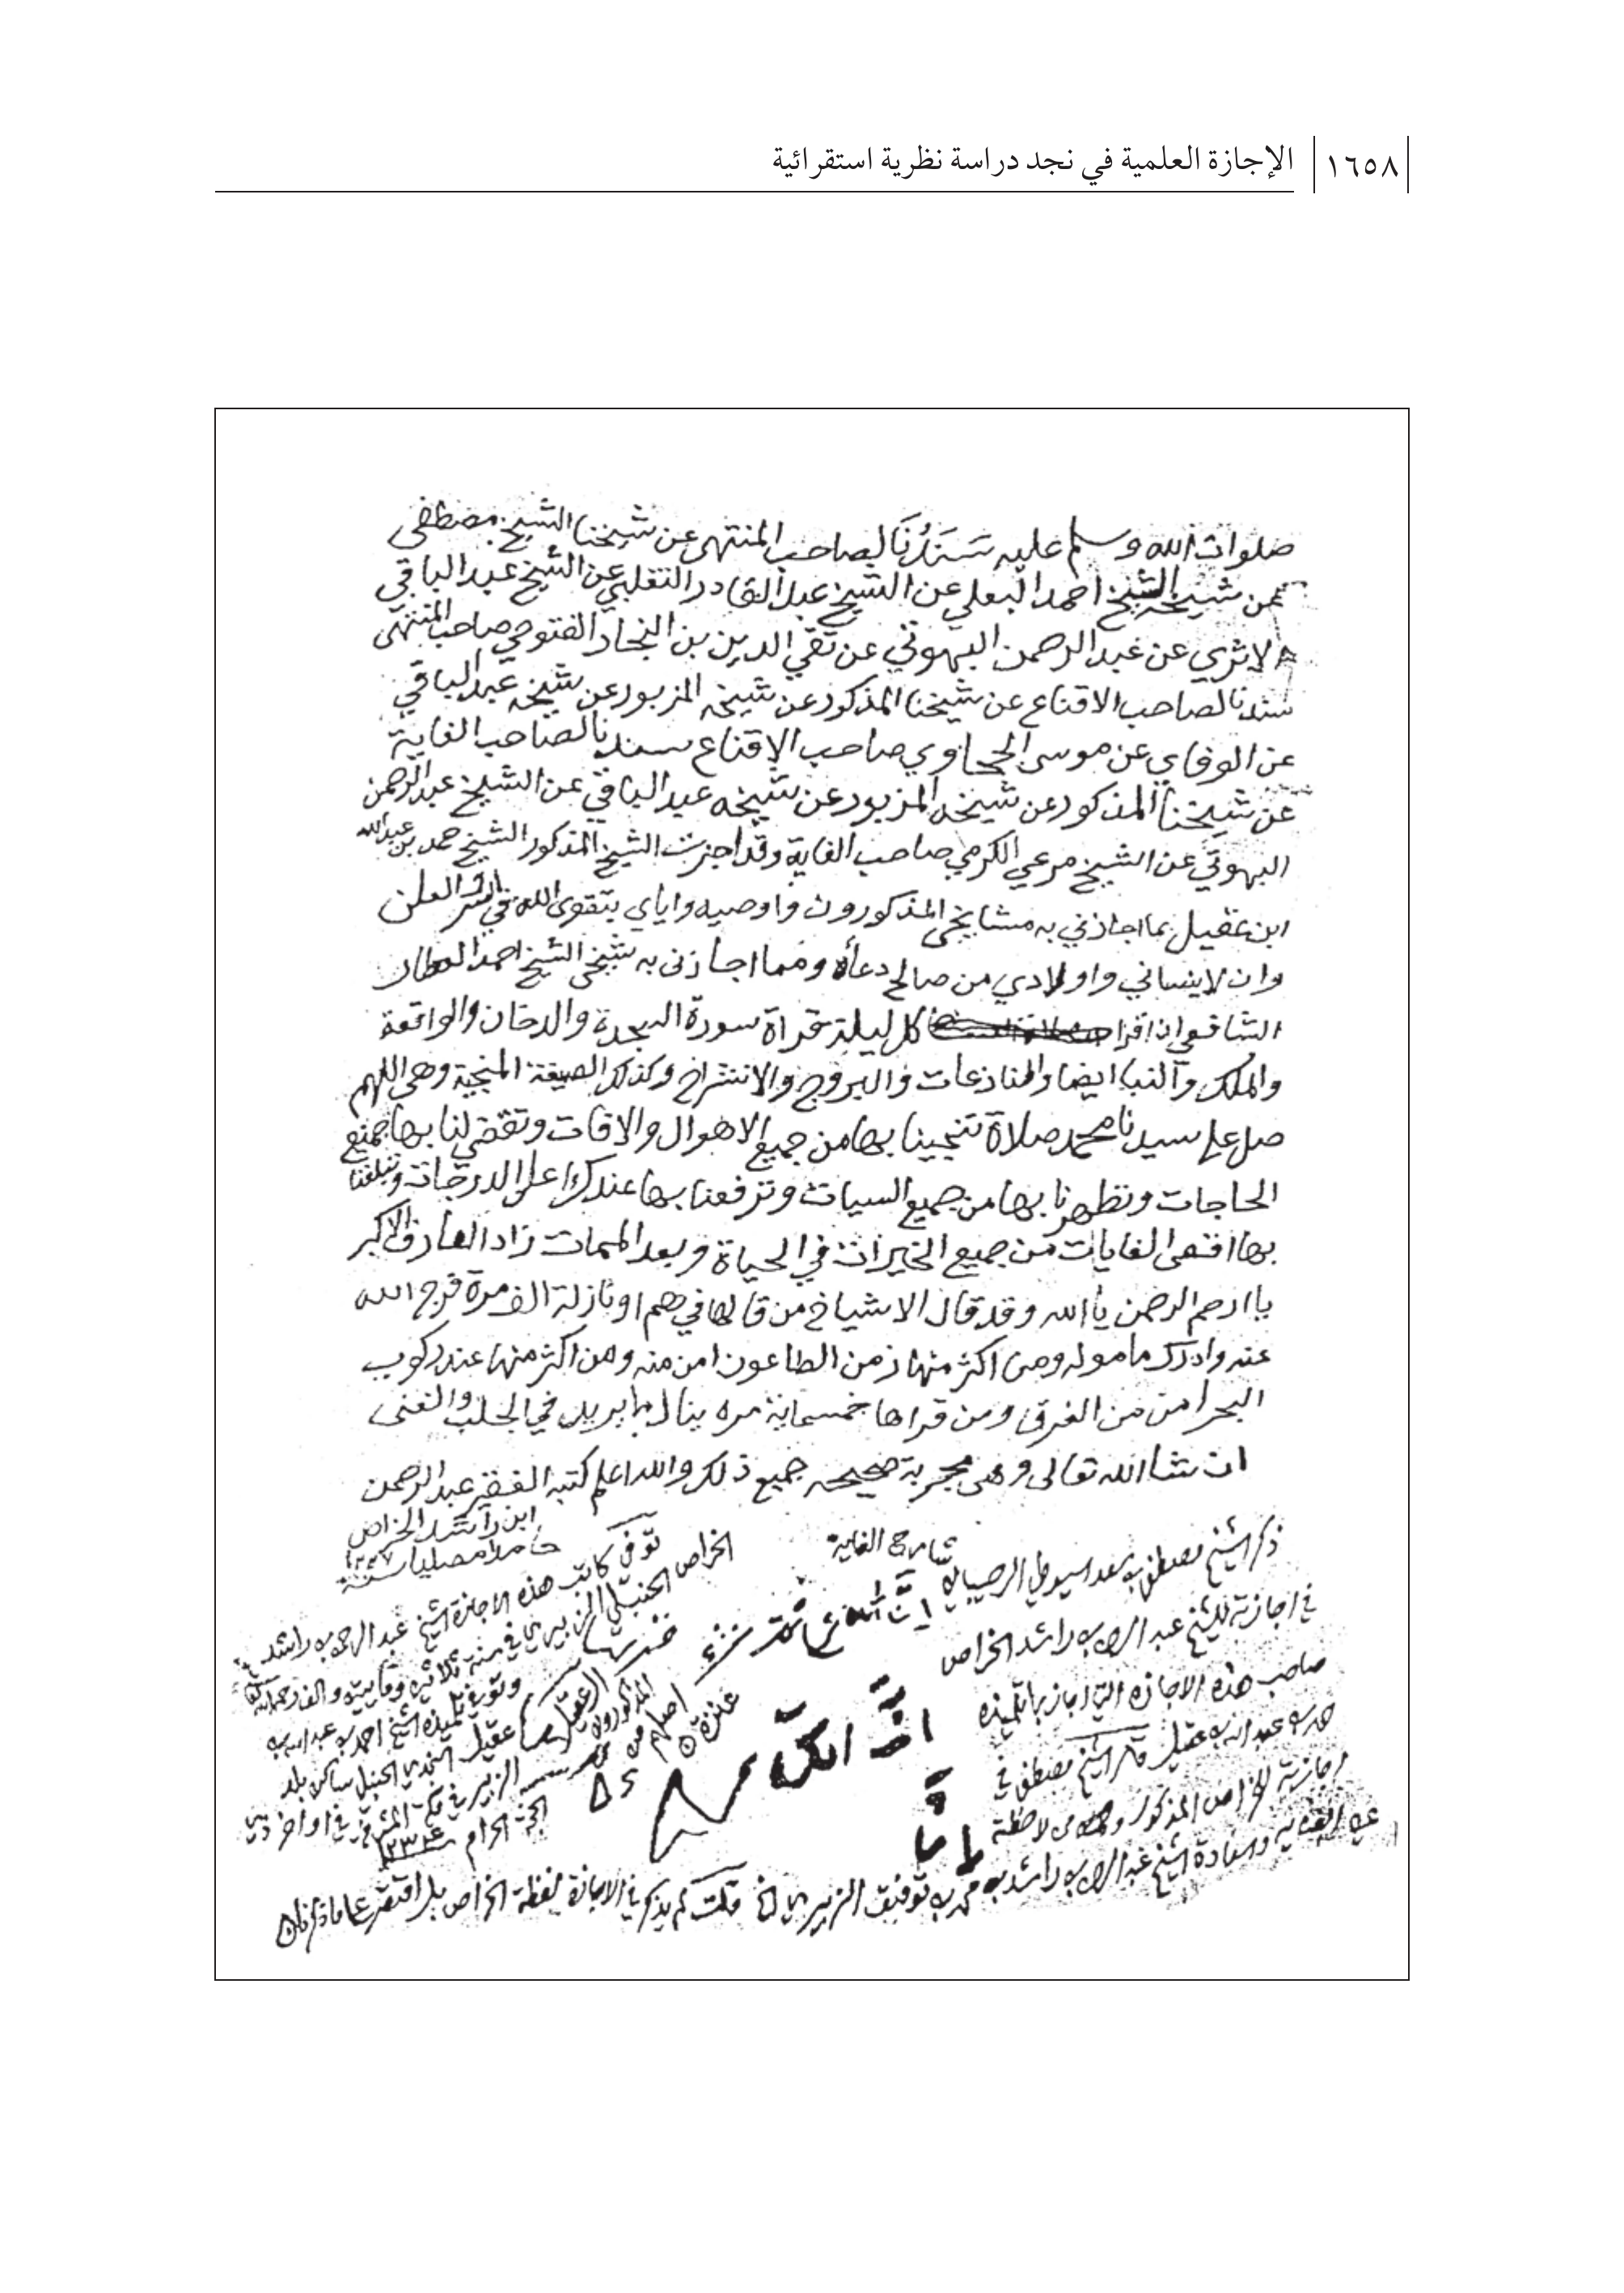 ١٦٥٨ الإجازة العلمية في نجد دراسة نظرية استقرائية
صلوات الله وسلم عليه سَنَدُنَا لصاحب المنتهى عن شيخنا الشيخ مصطفى
عن شيخه الشيخ احمد البعلي عن الشيخ عبد القادر التغلبي عن الشيخ عبد الباقي
الاثري عن عبد الرحمن البهوتي عن تقي الدين بن النجار الفتوحي صاحب المنتهى
سندنا لصاحب الاقناع عن شيخنا المذكور عن شيخه المزبور عن شيخه عبد الباقي
عن الوفاي عن موسى الحجاوي صاحب الاقناع سندنا لصاحب الغاية
عن شيخنا المذكور عن شيخه المزبور عن شيخه عبد الباقي عن الشيخ عبد الرحمن
البهوتي عن الشيخ مرعي الكرمي صاحب الغاية وقد اجزت الشيخ المذكور الشيخ حمد بن عبد الله
ابن عقيل بما اجازني به مشايخي المذكورون واوصيه واياي بتقوى الله في السر والعلن
وان لا ينساني واولادي من صالح دعاه ومما اجازنى به شيخى الشيخ احمد العطار
الشافعي ان اقرا كل ليلة قراة سورة السجدة والدخان والواقعة
والملك والنبا ايضا والنازعات والبروج والانشراح وكذلك الصيغة المنجية وهي اللهم
صل على سيدنا محمد صلاة تنجينا بها من جميع الاهوال والافات وتقضي لنا بها جميع
الحاجات وتطهرنا بها من جميع السيات وترفعنا بها عندك اعلى الدرجات وتبلغنا
بها اقصى الغايات من جميع الخيرات في الحياة وبعد الممات زاد العارف الاكبر
يا ارحم الرحمن يا الله وقد قال الاشياخ من قالها في هم او نازلة الف مرة فرج الله
عنه وادرك ماموله ومن اكثر منها زمن الطاعون امن منه ومن اكثر منها عند ركوب
البحر امن من الغرق ومن قراها خمسماية مره ينال ما يريد في الجلب والغنى
ان شا الله تعالى وهى مجربة صحيحه جميع ذلك والله اعلم كتبه الفقير عبد الرحمن
ابن راشد الخراص
حامدا مصليا سنة ١٢٢٧
ذكر الشيخ مصطفى بن سعد السيوطي الرحيباني شارح الغاية
في اجازته للشيخ عبد الرحمن بن راشد الخراص
صاحب هذه الاجازه التي اجاز بها تلميذه
حمد بن عبد الله بن عقيل قال الشيخ مصطفى في
اجازته للخراص المذكور
الشيخ عبد الرحمن بن راشد بن محمد بن توفيق الزبيري الخ قلت لم يذكر في الاجازة لفظة الخراص بل اقتصر على ما ذكرناه
توفي كاتب هذه الاجازة الشيخ عبد الرحمن بن راشد
الخراص الحنبلي الزبيري في سنة
وتوفي تلميذه الشيخ احمد بن عبد الله بن
عقيل النجدي الحنبلي ساكن بلد
الزبير في مكة المشرفة في اواخر ذي
الحجة الحرام ١٢٣٤
المذكورون
اصلهم من
عنزة